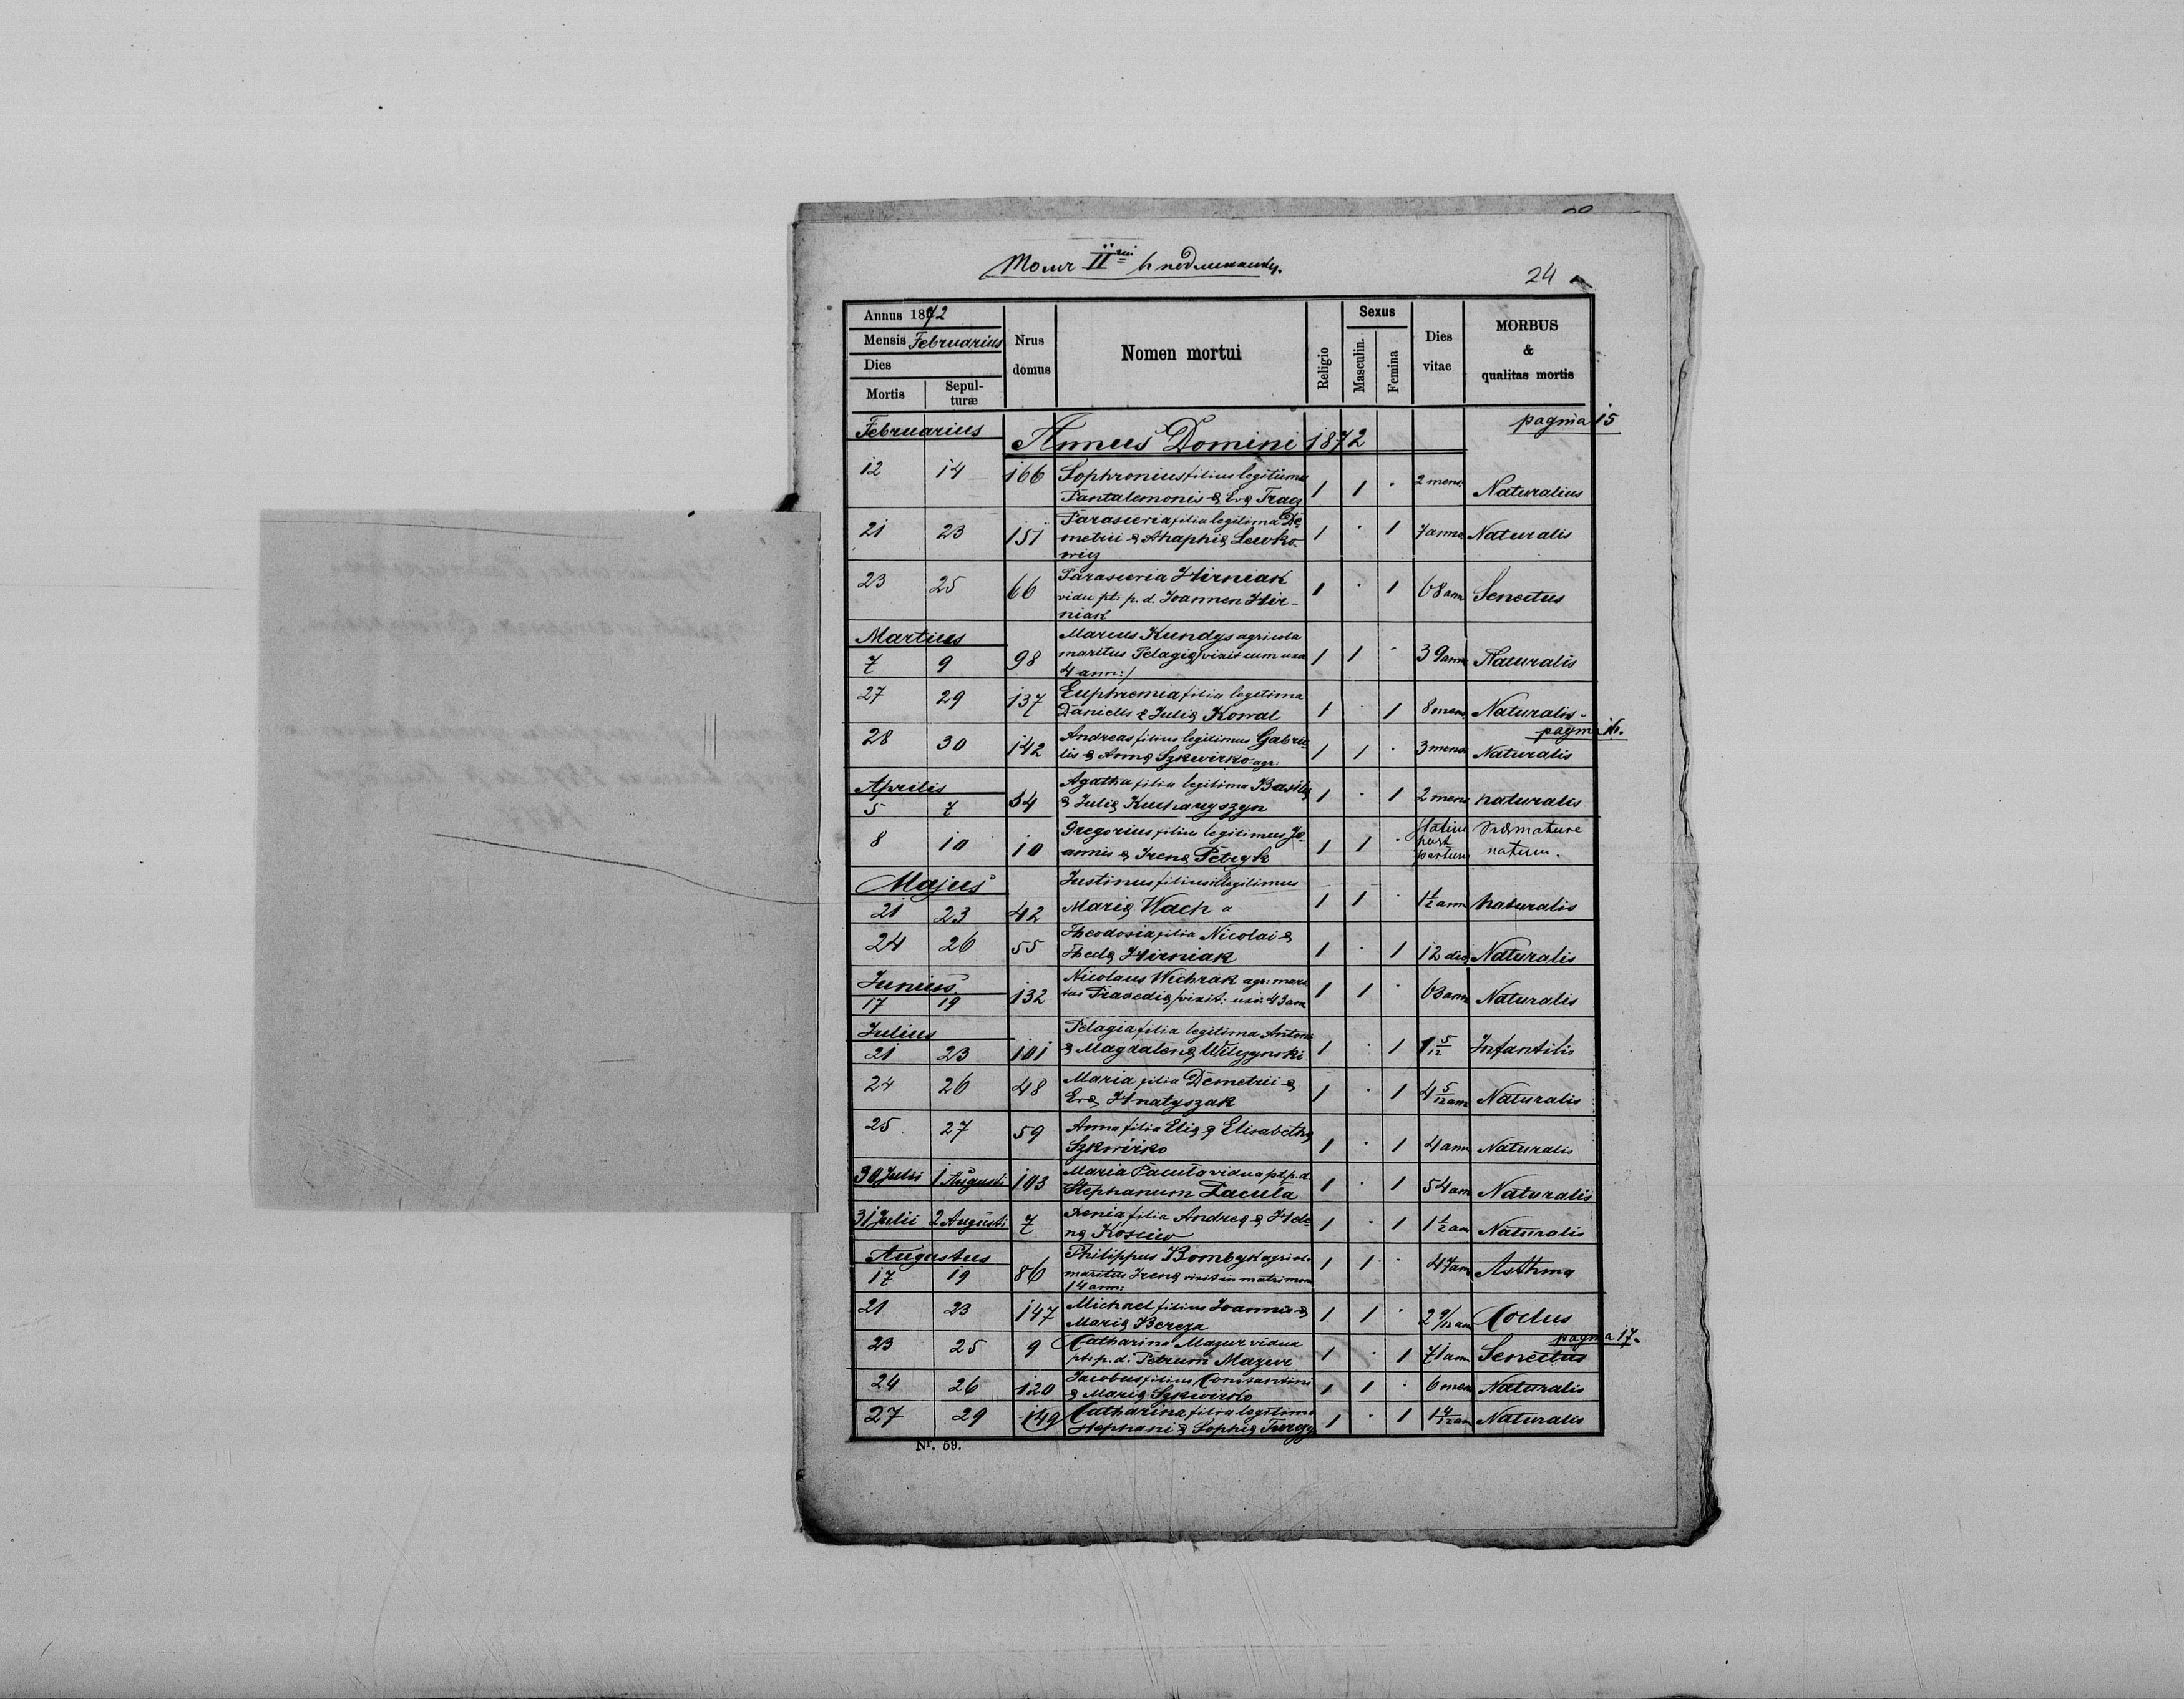 II
24
Annus 1872
Mensis Februarius
Dies
Mortis
Sepulturæ
Nrus domus
Nomen mortui
Religio
Sexus
Masculin.
Femina
Dies vitae
MORBUS & qualitas mortis
Februarius Annus Domini 1872 pagina 15
12 14 166 Sophronius filius legitimus
Pantalemonis & Evæ 1 1 · 2 mens. Naturalius
21 23 151 Parascevia filia legitima De
metrii & Ahaphiæ Lewko
wicz 1 · 1 7 anno Naturalis
23 25 66 Parascevia Hirniak
vidu pt: p. d. Joannen Hir-
niak 1 · 1 68 ann Senectus
Martius
7 9 98 Marcus Kundys agricola
maritus Pelagiæ /vixit cum uxo
4 ann:/ 1 1 · 39 ann Naturalis
27 29 137 Euphremia filia legitima
Danielis & Juliæ Kowal 1 · 1 8 mens Naturalis
pagina 16.
28 30 142 Andreas filius legitimus Gabrie
lis & Annæ Szkwirko agr: 1 1 · 3 mens Naturalis
Aprilis
5 7 34 Agatha filia legitima Basilii
& Juliæ Kucharyszyn 1 · 1 2 mens naturalis
8 10 10 Gregorius filius legitimus Jo
annis & Irenæ Petryk 1 1 · statim
post
partum
natum.
Majus
21 23 42 Justinus filius illegitimus
Mariæ Wach 1 1 · 1½ ann Naturalis
24 26 55 Theodosia filia Nicolai &
Theclæ Hirniak 1 · 1 12 die Naturalis
Junius
17 19 132 Nicolaus Wichrak agr: mari
tus Praxediæ /vixit: uxo: 43 ann 1 1 · 63 ann Naturalis
Julius
21 23 101 Pelagia filia legitima Antoni
& Magdalenæ Wilczynski 1 · 1 1 5/12 Infantilis
24 26 48 Maria filia Demetrii &
Evæ Hnatyszak 1 · 1 4 5/12 ann Naturalis
25 27 59 Anna filia Eliæ & Elisabethæ
Szkwirko 1 · 1 4 ann Naturalis
30 Julii 1 Augusti 103 Maria Pacuta vidua pt: p. d.
Stephanum Pacuta 1 · 1 54 ann Naturalis
31 Julii 2 Augusti 7 Xenia filia Andreæ & Hele
næ Kosciw 1 · 1 1½ ann Naturalis
Augustus
17 19 86 Philippus Bombyk agricola
maritus Irenæ vixit in matrimon
14 ann: 1 1 · 47 ann Asthma
21 23 147 Michael filius Joannis &
Mariæ Bereza 1 1 · 2 9/12 ann
pagina 17.
23 25 9 Catharina Mazur vidua
pt: p. d: Petrum Mazur 1 · 1 71 ann Senectus
24 26 120 Jacobus filius Constantini
& Mariæ Szkwirko 1 1 · 6 mens Naturalis
27 29 149 Catharina filia legitima
Stephani & Sophiæ 1 · 1 1 4/12 ann Naturalis
Nr. 59.